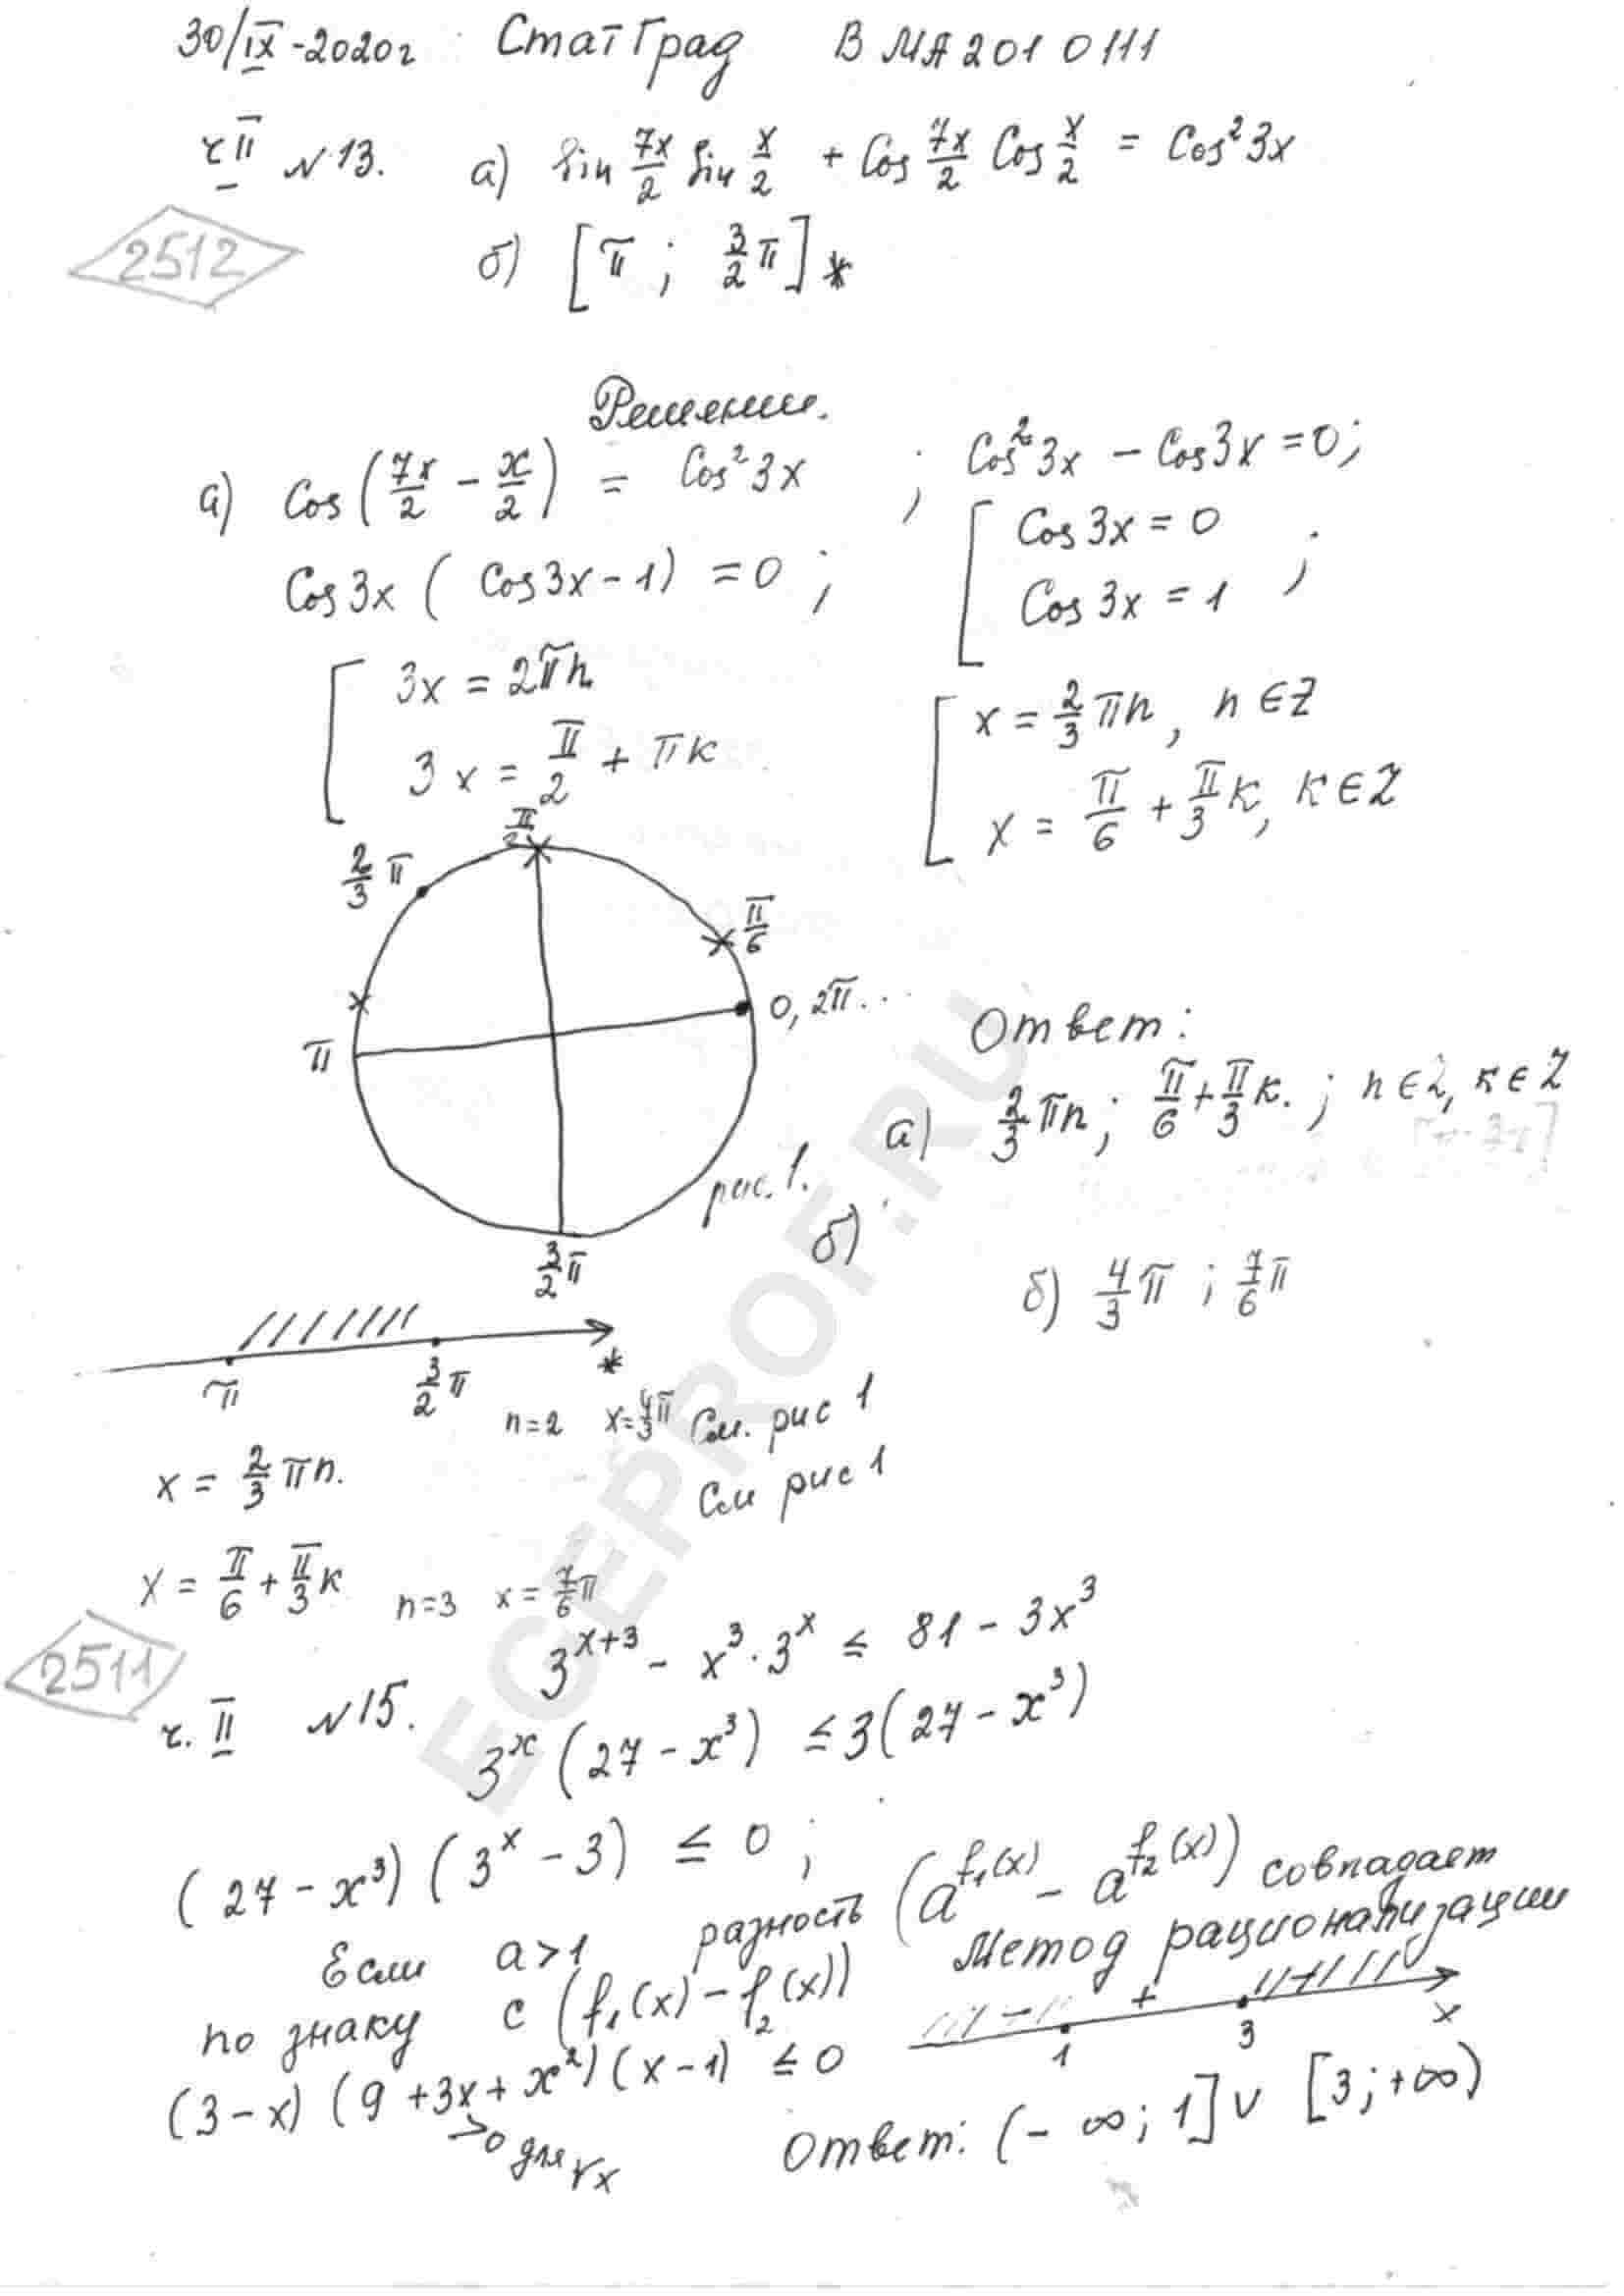 30/IX-2020г СтатГрад ВМА2010111
ч II №13. а) sin 7x/2 sin x/2 + Cos 7x/2 Cos x/2 = Cos² 3x
2512
б) [π; 3/2 π] *
Решение.
а) Cos(7x/2 - x/2) = Cos² 3x ; Cos² 3x - Cos 3x = 0;
Cos 3x (Cos 3x - 1) = 0 ; [ Cos 3x = 0
Cos 3x = 1 ;
[ 3x = 2πn
3x = π/2 + πk
[ x = 2/3 πn, n ∈ Z
x = π/6 + π/3 k, k ∈ Z
π/2
2/3 π
π/6
0, 2π...
π
3/2 π
рис. 1.
Ответ:
а) 2/3 πn; π/6 + π/3 k. ; n ∈ Z, k ∈ Z
б)
б) 4/3 π ; 7/6 π
π 3/2 π *
x = 2/3 πn. n=2 x=4/3 π См. рис 1
См рис 1
x = π/6 + π/3 k n=3 x = 7/6 π
2511
ч. II №15. 3^(x+3) - x³·3^x ≤ 81 - 3x³
3^x (27 - x³) ≤ 3(27 - x³)
(27 - x³)(3^x - 3) ≤ 0 ;
Если a>1 разность (a^f₁(x) - a^f₂(x)) совпадает
по знаку с (f₁(x) - f₂(x)) Метод рационализации
(3-x)(9+3x+x²)(x-1) ≤ 0
>0 для ∀x
- + +
1 3 x
Ответ: (-∞; 1] ∪ [3; +∞)
EGEPROF.RU